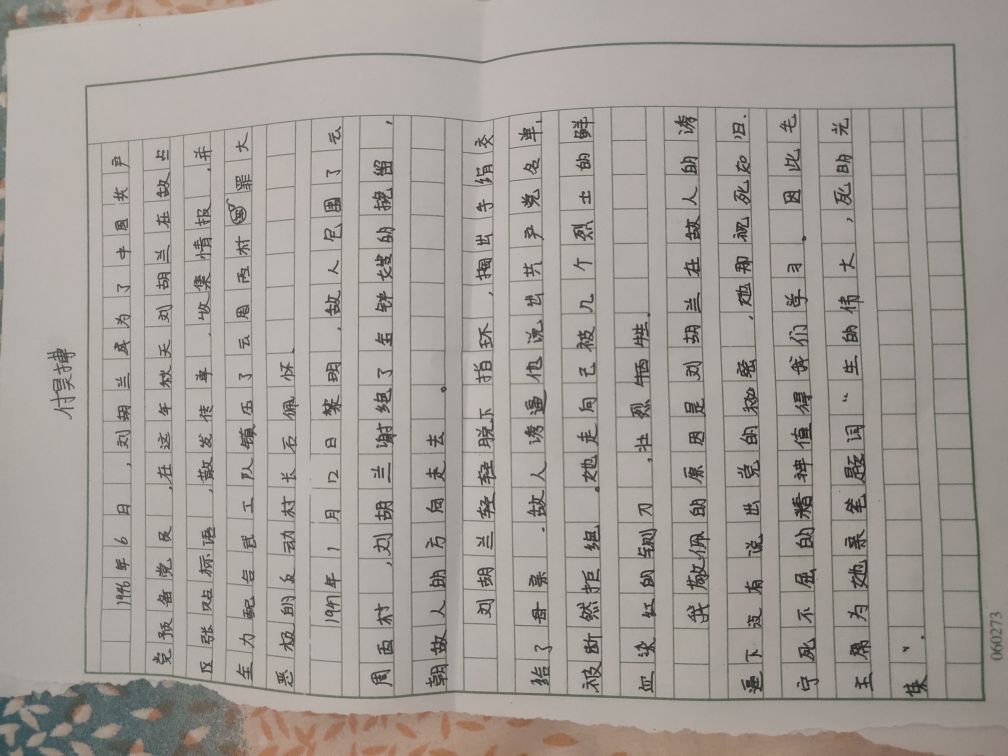 付昊搏
1946年6日，刘胡兰成为了中国共产
党预备党员，在这年秋天刘胡兰在敌占
区张贴标语，散发传单，收集情报，并
全力配合武工队镇压了云周西村罪大
恶极的反动村长石佩怀。
1947年1月12日黎明，敌人包围了云
周西村，刘胡兰谢绝了金钟嫂的挽留，
朝敌人的方向走去。
刘胡兰轻轻脱下指环，掏出手绢交
给了母亲。敌人诱逼他说出共产党名单，
被断然拒绝。她走向已被几个烈士的鲜
血染红的铡刀，壮烈牺牲。
我敬佩的原因是刘胡兰在敌人的诱
逼下没有说出党的秘密，她那视死如旧、
宁死不屈的精神值得我们学习。因此毛
主席为她亲笔题词“生的伟大，死的光
”。
060273